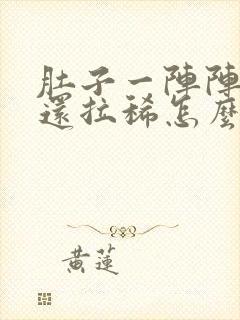 肚子一陣陣
還拉稀怎麼
黃蓮